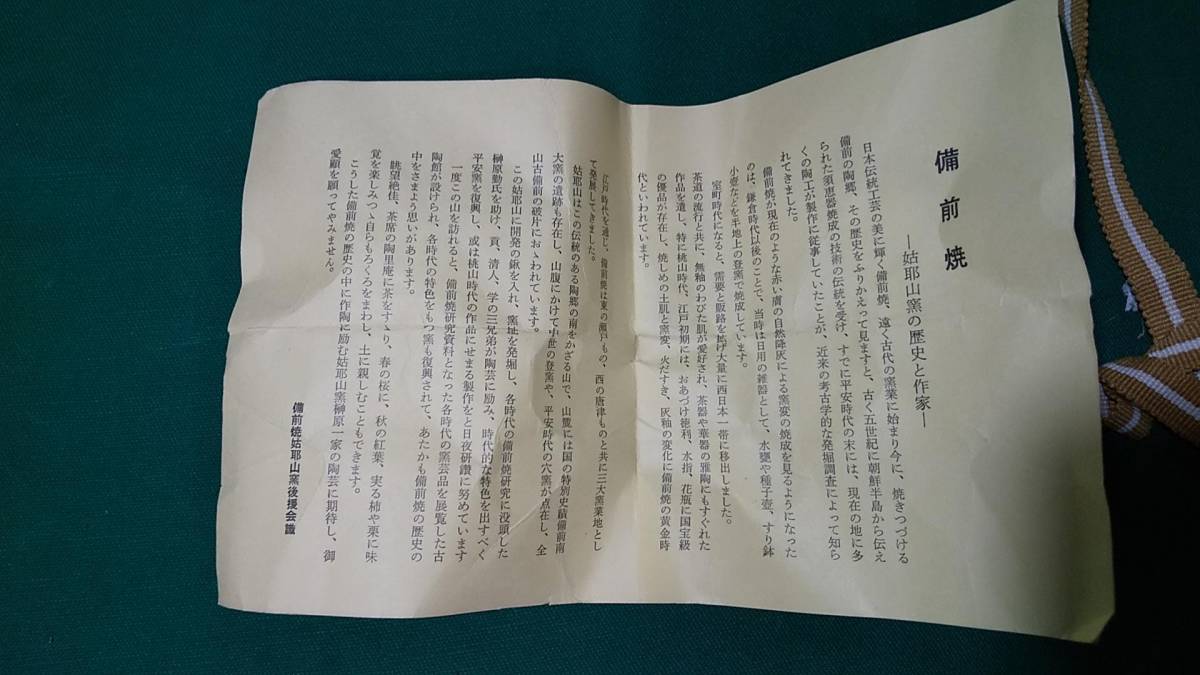 備前焼
―姑耶山窯の歴史と作家―
日本伝統工芸の美に輝く備前焼、遠く古代の窯業に始まり今に、焼きつづける
備前の陶郷、その歴史をふりかえって見ますと、古く五世紀に朝鮮半島から伝え
られた須恵器焼成の技術の伝統を受け、すでに平安時代の末には、現在の地に多
くの陶工が製作に従事していたことが、近来の考古学的な発掘調査によって知ら
れてきました。
備前焼が現在のような赤い膚の自然降灰による窯変の焼成を見るようになった
のは、鎌倉時代以後のことで、当時は日用の雑器として、水甕や種子壺、すり鉢
小壺などを半地上の登窯で焼成しています。
室町時代になると、需要と販路を拡げ大量に西日本一帯に移出しました。
茶道の流行と共に、無釉のわびた肌が愛好され、茶器や華器の雅陶にもすぐれた
作品を遺し、特に桃山時代、江戸初期には、おあづけ徳利、水指、花瓶に国宝級
の優品が存在し、焼しめの土肌と窯変、火だすき、灰釉の変化に備前焼の黄金時
代といわれています。
江戸時代を通じ、備前焼は東の瀬戸もの、西の唐津ものと共に三大窯業地とし
て発展してきました。
姑耶山はこの伝統のある陶郷の南をかざる山で、山麓には国の特別史蹟備前南
大窯の遺跡も存在し、山腹にかけて中世の登窯や、平安時代の穴窯が点在し、全
山古備前の破片におゝわれています。
この姑耶山に開発の鍬を入れ、窯址を発掘し、各時代の備前焼研究に没頭した
榊原勤氏を助け、貢、清人、学の三兄弟が陶芸に励み、時代的な特色を出すべく
平安窯を復興し、或は桃山時代の作品にせまる製作をと日夜研鑽に努めています
一度この山を訪れると、備前焼研究資料となった各時代の窯芸品を展覧した古
陶館が設けられ、各時代の特色をもつ窯も復興されて、あたかも備前焼の歴史の
中をさまよう思いがあります。
眺望絶佳、茶席の陶里庵に茶をすゝり、春の桜に、秋の紅葉、実る柿や栗に味
覚を楽しみつゝ自らもろくろをまわし、土に親しむこともできます。
こうした備前焼の歴史の中に作陶に励む姑耶山窯榊原一家の陶芸に期待し、御
愛顧を願ってやみません。
備前焼姑耶山窯後援会識